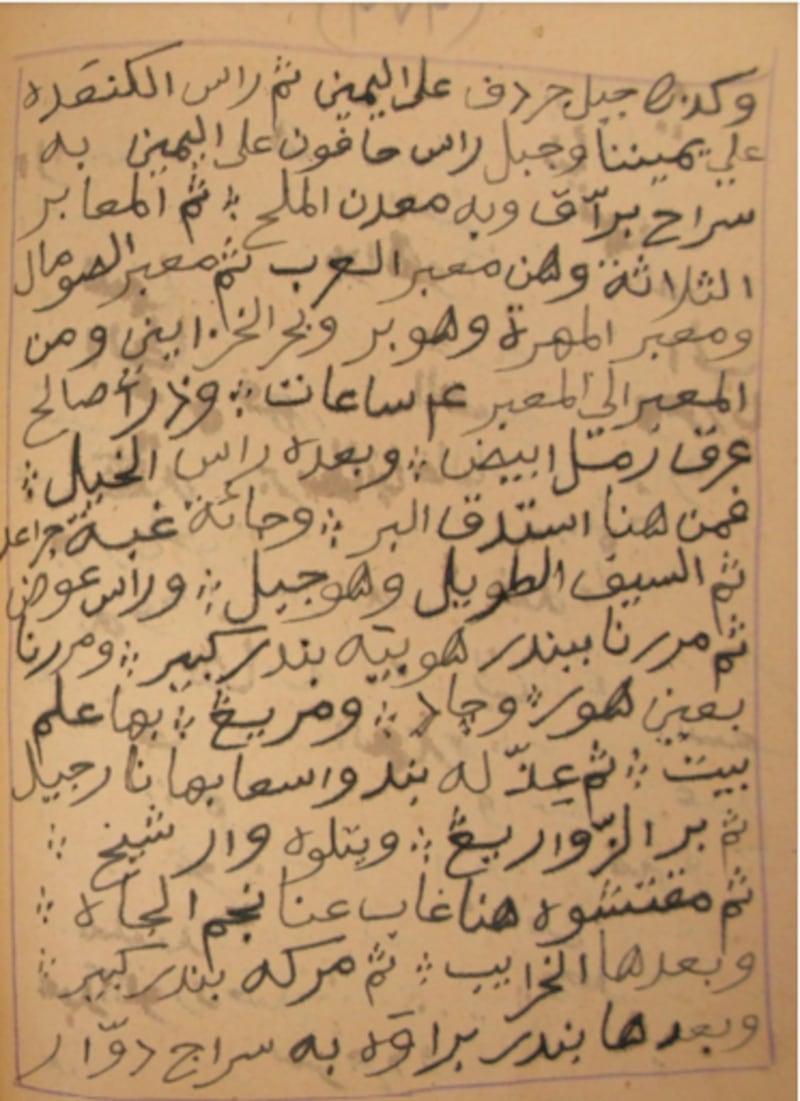 وكذا جبل جردف على اليمين ثم راس الكنقده
على يميننا وجبل راس حافون على اليمين به
سراج برّاق وبه معدن الملح ؛ ثم المعابر
الثلاثة وهن معبر العرب ثم معبر الصومال
ومعبر المهرة وهو بر وبحر الخزاين ومن
المعبر الى المعبر عم ساعات ؛ وذرأ صالح
عرق رمل ابيض ؛ وبعده راس الخيل ؛
فمن هنا استدق البر ؛ وحائة غبة جراعد
ثم السيف الطويل وهو جبل ؛ وراس عوض
ثم مررنا ببندر هوبيه بندر كبير ؛ ومررنا
بعين هور ؛ وجاد ؛ ومريغ ؛ بها علم
بيت ؛ ثم عدّله بندر واسعا بها نارجيل
ثم بر الزّواريغ ؛ ويتلوه وار شيخ ؛
ثم مقتشوه هنا غاب عنا نجم الجاه ؛
وبعدها الخرايب ؛ ثم مركه بندر كبير ؛
وبعدها بندر براوه به سراج دوّار